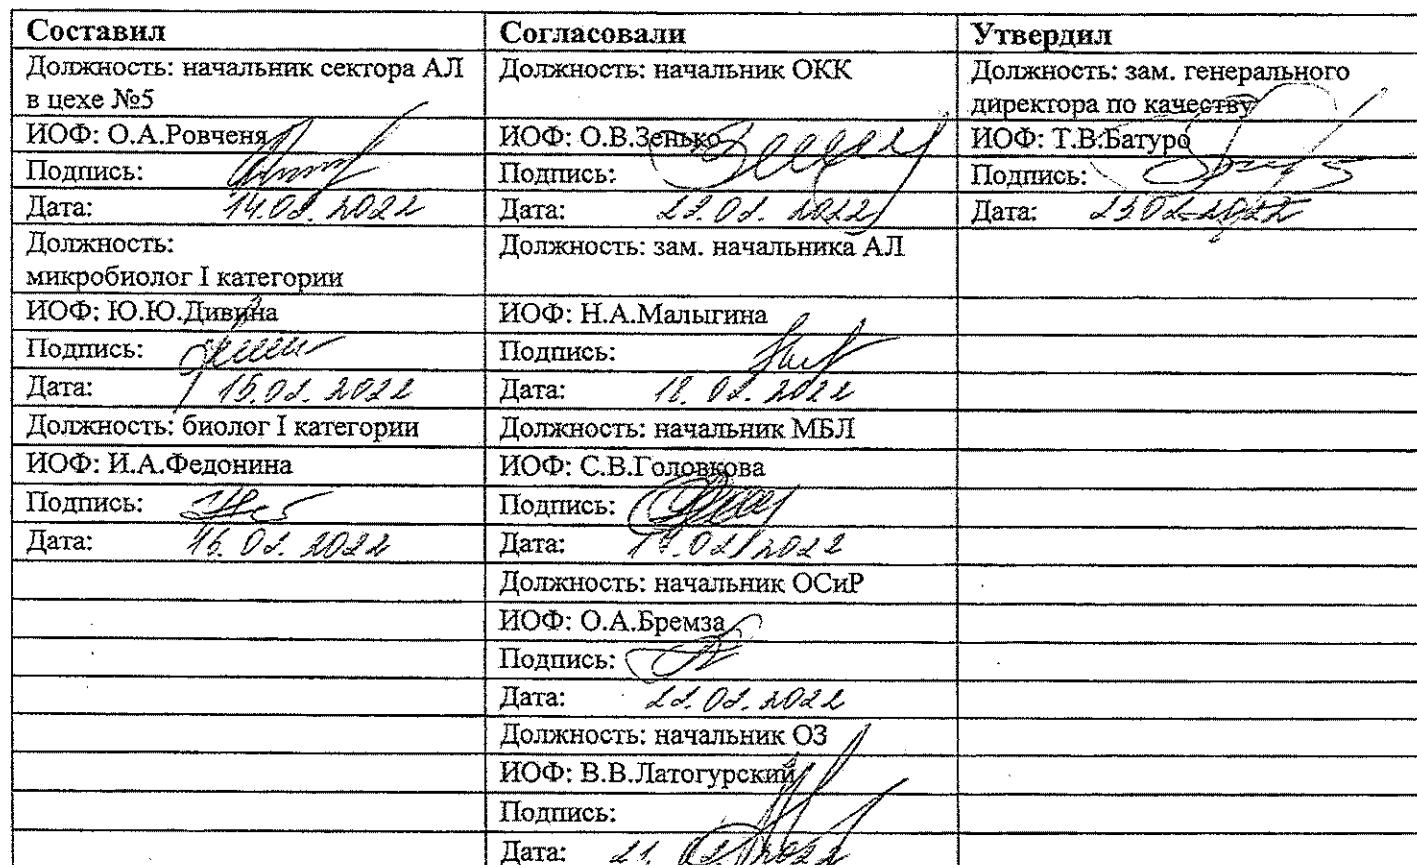 Составил
Согласовали
Утвердил
Должность: начальник сектора АЛ
в цехе №5
Должность: начальник ОКК
Должность: зам. генерального
директора по качеству
ИОФ: О.А.Ровченя
ИОФ: О.В.Зенько
ИОФ: Т.В.Батуро
Подпись:
Подпись:
Подпись:
Дата: 14.02.2022
Дата: 22.02.2022
Дата:
Должность:
микробиолог I категории
Должность: зам. начальника АЛ
ИОФ: Ю.Ю.Дивина
ИОФ: Н.А.Малыгина
Подпись:
Подпись:
Дата: 15.02.2022
Дата: 18.02.2022
Должность: биолог I категории
Должность: начальник МБЛ
ИОФ: И.А.Федонина
ИОФ: С.В.Головкова
Подпись:
Подпись:
Дата: 16.02.2022
Дата: 17.02.2022
Должность: начальник ОСиР
ИОФ: О.А.Бремза
Подпись:
Дата: 22.02.2022
Должность: начальник ОЗ
ИОФ: В.В.Латогурский
Подпись:
Дата: 21.02.2022